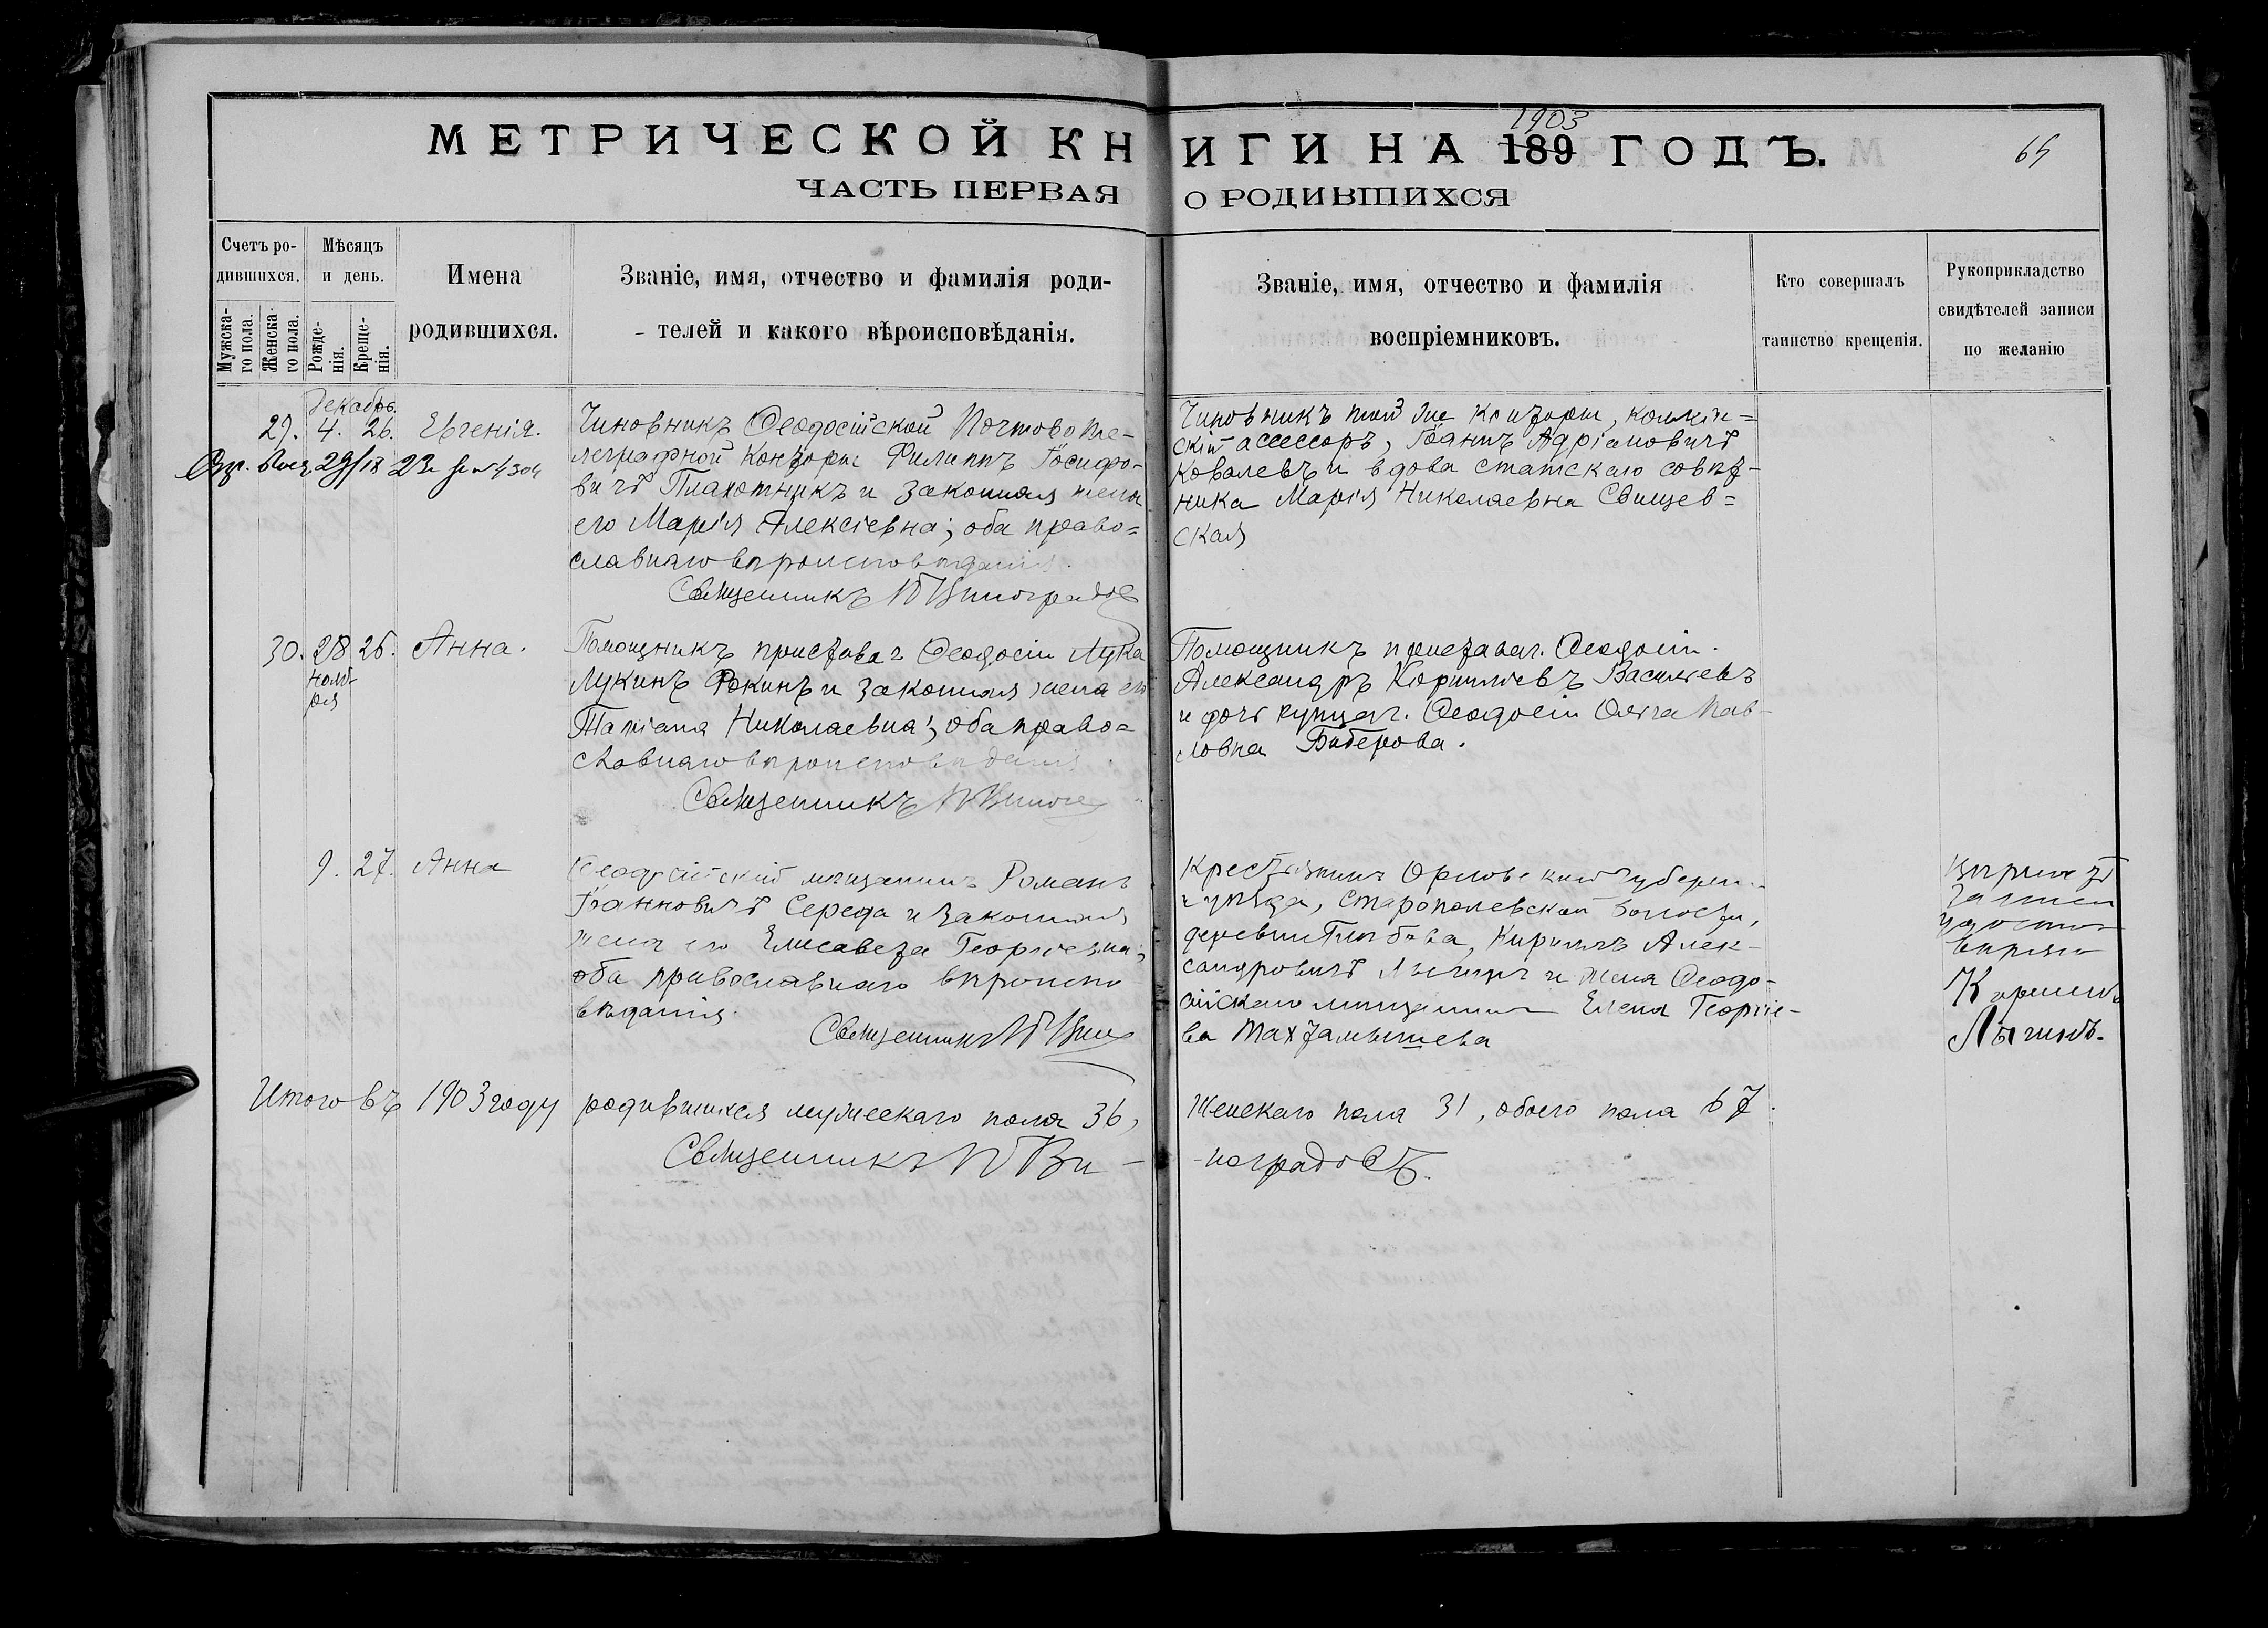 МЕТРИЧЕСКОЙ КНИГИ НА 189 ГОДЪ.
1903
65
ЧАСТЬ ПЕРВАЯ О РОДИВШИХСЯ
Счетъ ро-
дившихся.
Мужска-
го пола.
Женска-
го пола.
Мѣсяцъ
и день.
Рожде-
нія.
Креще-
нія.
Имена
родившихся.
Званіе, имя, отчество и фамилія роди-
телей и какого вѣроисповѣданія.
Званіе, имя, отчество и фамилія
воспріемниковъ.
Кто совершалъ
таинство крещенія.
Рукоприкладство
свидѣтелей записи
по желанію
Декабрь.
29. 4. 26. Евгенія.
Чиновникъ Ѳеодосійской Почтово Те-
леграфной Конторы Филиппъ Іосифо-
вичъ Плахотникъ и законная жена
его Марія Алексіевна; оба право=
славнаго вѣроисповѣданія.
Священникъ Виноградов
Чиновникъ той же Конторы, коллеж=
скій ассессоръ, Іоаннъ Адріановичъ
Ковалевъ и вдова статскаго совѣт-
ника Марія Николаевна Свищев=
ская
30. 28 26. Анна.
нояб-
ря
Помощникъ пристава г. Ѳеодосіи Лука
Лукинъ Фокинъ и законная жена его
Татіана Николаевна; оба право=
славнаго вѣроисповѣданія.
Священникъ
Помощникъ пристава г. Ѳеодосіи.
Александръ Корниліевъ Васильевъ
и дочь купца г. Ѳеодосіи Ольга Пав-
ловна Биберова.
9. 27. Анна
Ѳеодосійскій мѣщанинъ Романъ
Іоанновичъ Середа и законная
жена его Елисавета Георгіевна;
оба православнаго вѣроиспо
вѣданія.
Священникъ
Крестьянинъ Орловской губерніи
и уѣзда, Старопол­евской волости,
деревни Кириллъ Алек-
сандровичъ Лыгинъ и жена Ѳеодо-
сійскаго мѣщанина Елена Георгіе-
ва Тахтамышева
Кирилъ
Лыгинъ.
Итого въ 1903 году родившихся мужескаго пола 36, женскаго пола 31, обоего пола 67.
Священникъ Ви-
-ноградовъ.